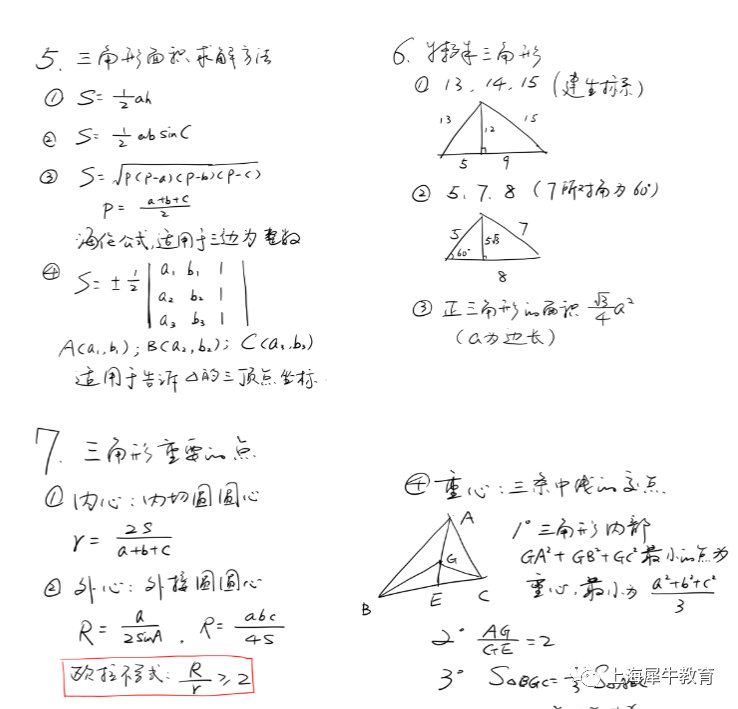 5. 三角形面积求解方法
① S=½ah
② S=½absinC
③ S=√P(P-a)(P-b)(P-c)
P=(a+b+c)/2
海伦公式,适用于三边为整数
④ S=±½ | a₁ b₁ 1 |
| a₂ b₂ 1 |
| a₃ b₃ 1 |
A(a₁,b₁); B(a₂,b₂); C(a₃,b₃)
适用于告诉△的三顶点坐标.
6. 特殊三角形
① 13、14、15 (建坐标系)
13 12 15
5 9
② 5、7、8 (7所对角为60°)
5 7
60°
8
③ 正三角形的面积 √3/4 a²
(a为边长)
7. 三角形重要的点
① 内心:内切圆圆心
r=2S/(a+b+c)
② 外心:外接圆圆心
R=a/2sinA , R=abc/4S
欧拉不等式: R/r ≥2
④ 重心:三条中线的交点.
A
G
B E C
1° 三角形内部
GA²+GB²+GC²最小的点为
重心,最小为 (a²+b²+c²)/3
2° AG/GE=2
3° S△BGC=⅓S△ABC
上海犀牛教育